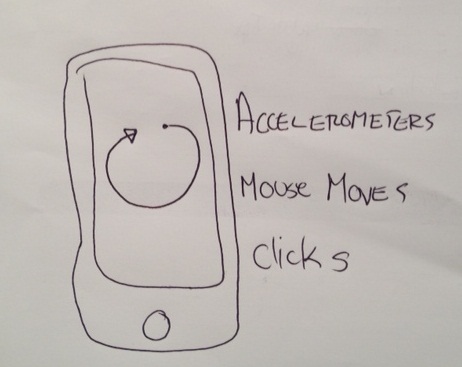 ACCELEROMETERS
MOUSE MOVES
clicks